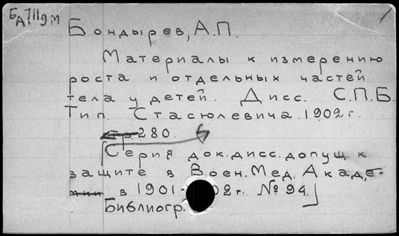 БА 7119м
Бондырев, А.П.
Материалы к измерению
роста и отдельных частей
тела у детей. Дисс. С.П.Б.
Тип. Стасюлевича. 1902г.
280.
[Серия док. дисс. допущ. к
защите в Воен. Мед. Акаде-
мии в 1901-02г. № 94.]
Библиогр.